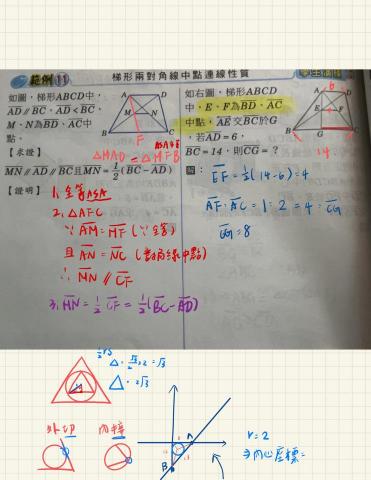 範例 11
梯形兩對角線中點連線性質
如圖，梯形ABCD中，
AD // BC，AD < BC，
M、N為BD、AC中
點。
【求證】
MN // AD // BC且MN = 1/2 (BC - AD)
【證明】
A
D
M
N
B
C
F
ASA全等
△MAD ≅ △MFB
1. 全等ASA
2. △AFC
∵ AM = MF (∵全等)
且 AN = NC (對角線中點)
∴ MN // CF
3. MN = 1/2 CF = 1/2 (BC - AD)
如右圖，梯形ABCD
中，E、F為BD、AC
中點，AE交BC於G
，若AD = 6，
BC = 14，則CG = ?
A
6
D
E
F
B
G
C
14
解：
EF = 1/2 (14-6) = 4
AF : AC = 1 : 2 = 4 : CG
CG = 8
△ = 2√3
外切
內接
A
B
r = 2
⇒ 內心座標 =